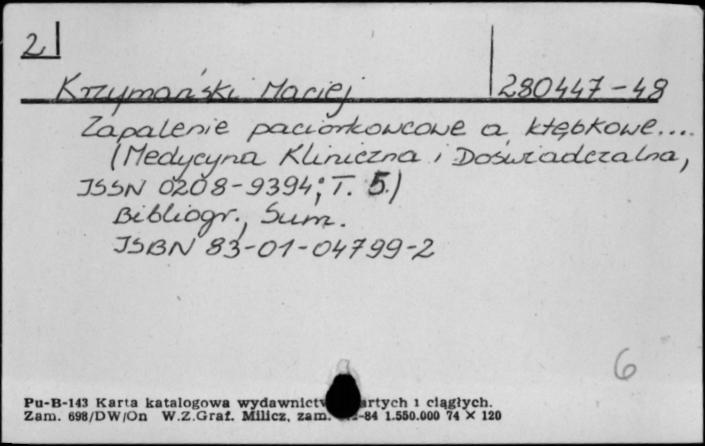 2
Krzymański Maciej 280447-48
Zapalenie paciorkowcowe a kłębkowe....
(Medycyna Kliniczna i Doświadczalna,
ISSN 0208-9394; T. 5.)
Bibliogr., Sum.
ISBN 83-01-04799-2
6
Pu-B-143 Karta katalogowa wydawnictw artych i ciągłych.
Zam. 698/DW/On W.Z.Graf. Milicz, zam. -84 1.550.000 74 × 120